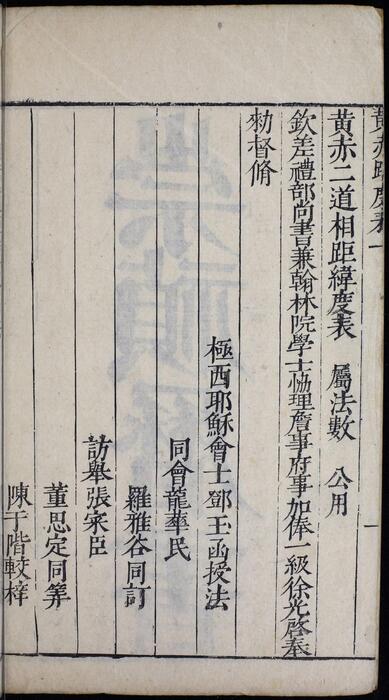 黃赤距度表一
黃赤二道相距緯度表 屬法數 公用
欽差禮部尚書兼翰林院學士協理詹事府事加俸一級徐光啓奉
勑督脩
極西耶穌會士鄧玉函授法
同會龍華民
羅雅谷同訂
訪舉張寀臣
董思定同筭
陳于階較梓
一